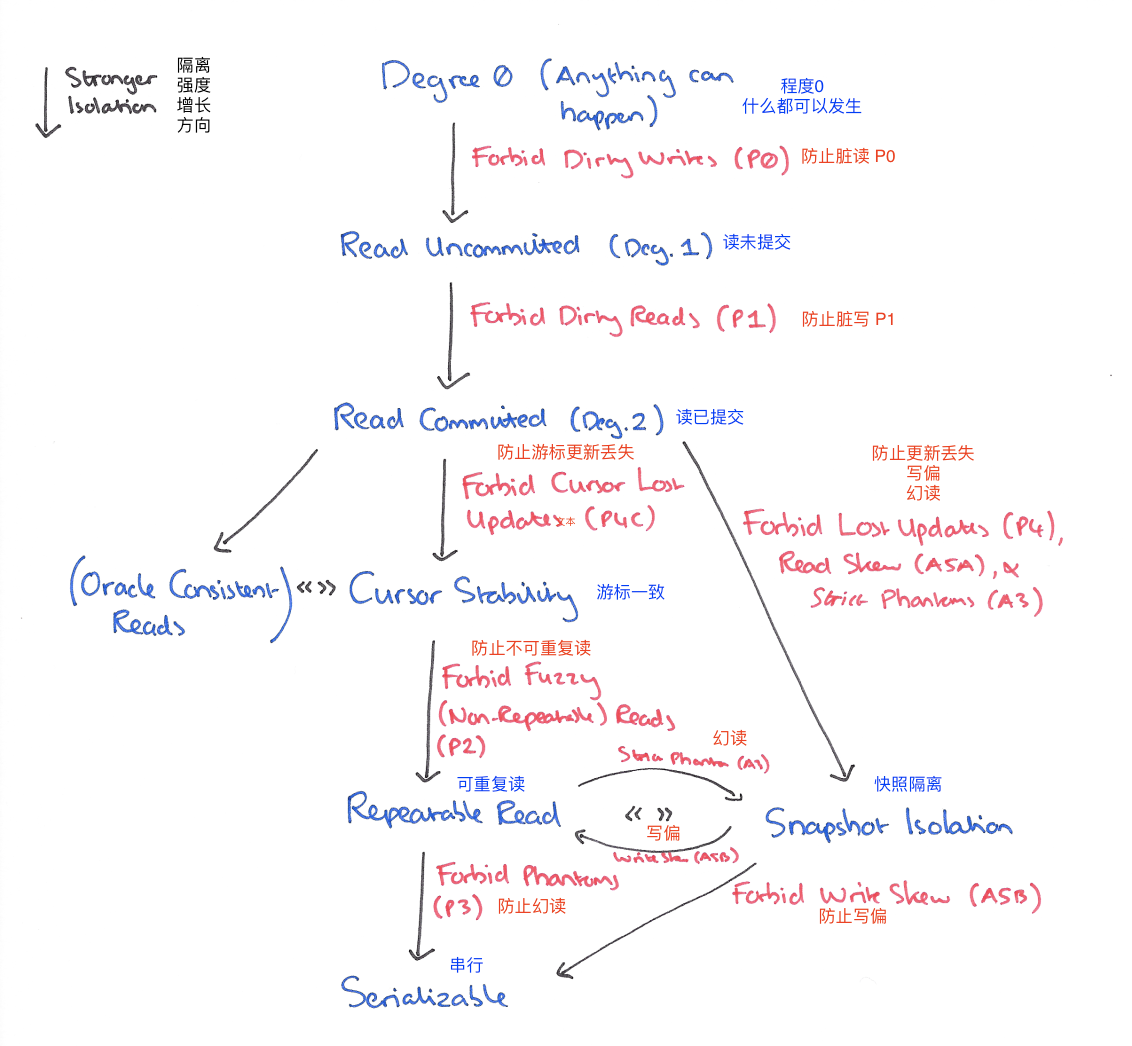 Stronger
Isolation
隔离
强度
增长
方向
Degree 0 (Anything can
happen)
程度0
什么都可以发生
Forbid Dirty Writes (P0)
防止脏读 P0
Read Uncommited (Deg. 1)
读未提交
Forbid Dirty Reads (P1)
防止脏写 P1
Read Commited (Deg. 2)
读已提交
防止游标更新丢失
Forbid Cursor Lost
Updates文本 (P4C)
防止更新丢失
写偏
幻读
Forbid Lost Updates (P4),
Read Skew (A5A), &
Strict Phantoms (A3)
(Oracle Consistent
Reads)
«»
Cursor Stability
游标一致
防止不可重复读
Forbid Fuzzy
(Non-Repeatable) Reads
(P2)
幻读
Strict Phantom (A3)
可重复读
Repeatable Read
« »
写偏
Write Skew (A5B)
快照隔离
Snapshot Isolation
Forbid Phantoms
(P3)
防止幻读
Forbid Write Skew (A5B)
防止写偏
串行
Serializable